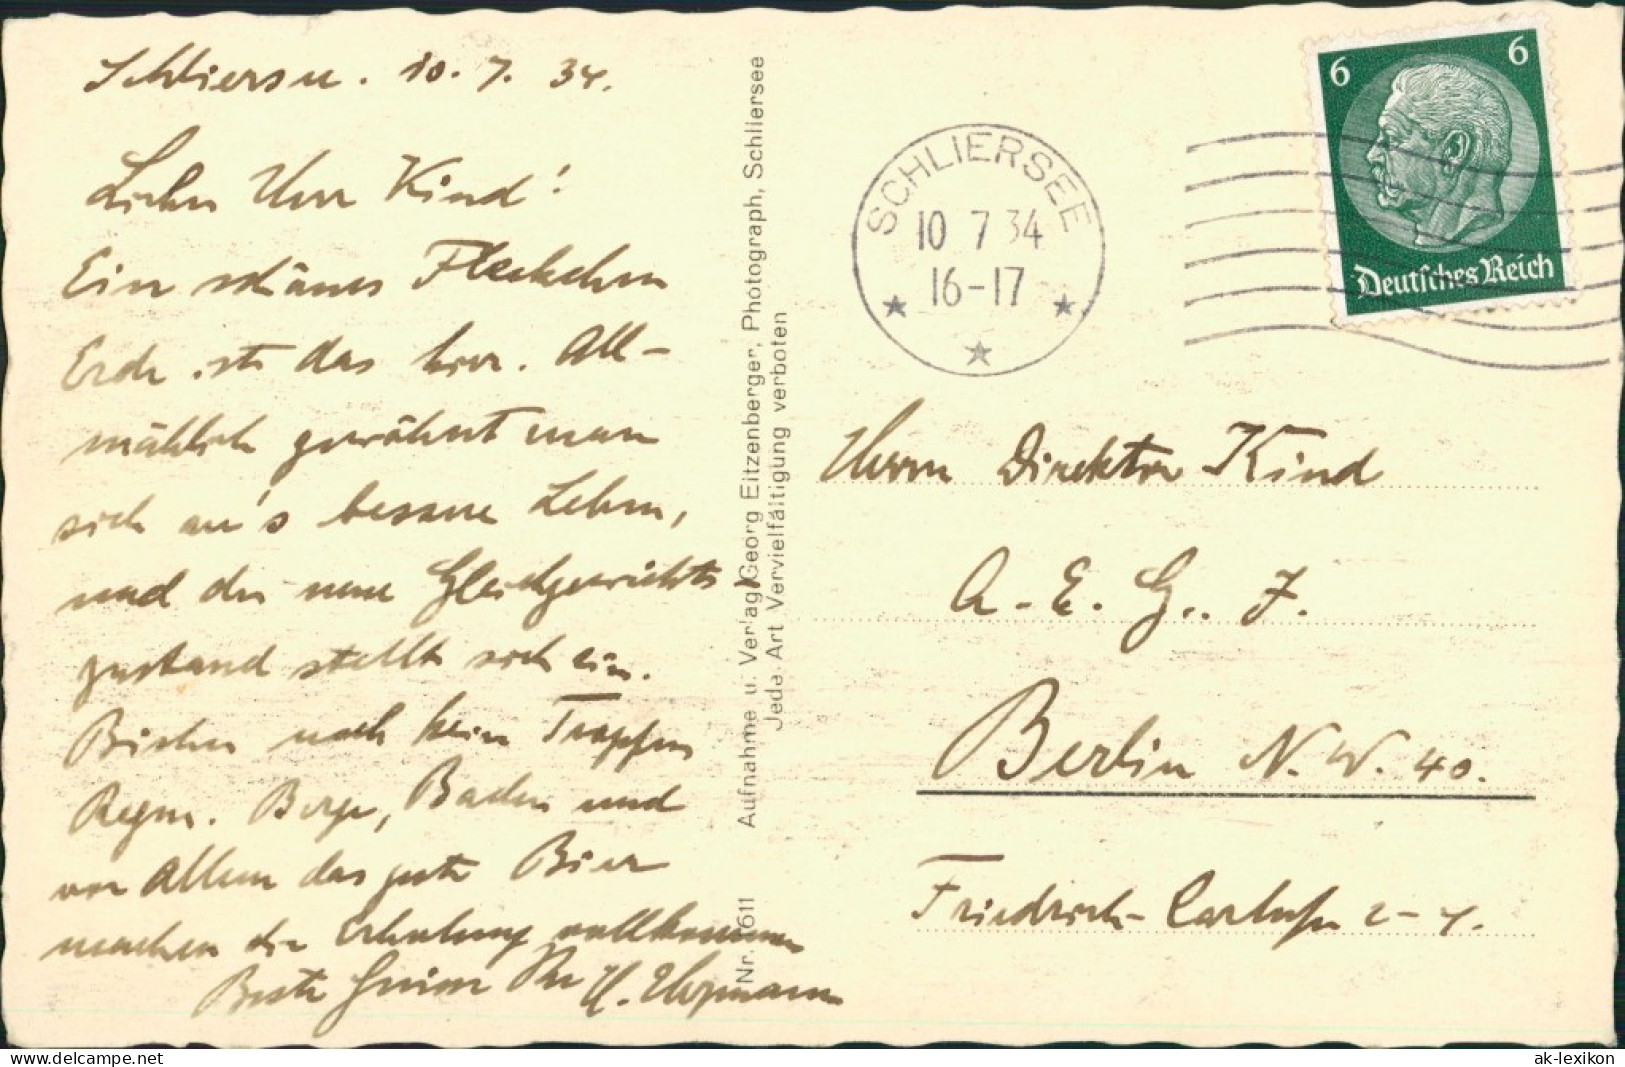 Schliersee. 10.7.34.
Lieber Herr Kind!
Ein schönes Fleckchen
Erde ist das hier. All-
mählich gewöhnt man
sich an's bessere Leben,
und der neue Gleichgewichts-
zustand stellt sich ein.
Bisher noch kein Tropfen
Regen. Berge, Baden und
vor Allem das gute Bier
machen die Erholung vollkommen
Beste Grüsse Ihr H.
Nr. 1611 Aufnahme u. Verlag Georg Eitzenberger, Photograph, Schliersee
Jede Art Vervielfältigung verboten
SCHLIERSEE
10 7 34
16-17
6 6
Deutsches Reich
Herrn Direktor Kind
A.E.G. F.
Berlin N.W. 40.
Friedrich-Carlufer 2-4.
delcampe.net
ak-lexikon